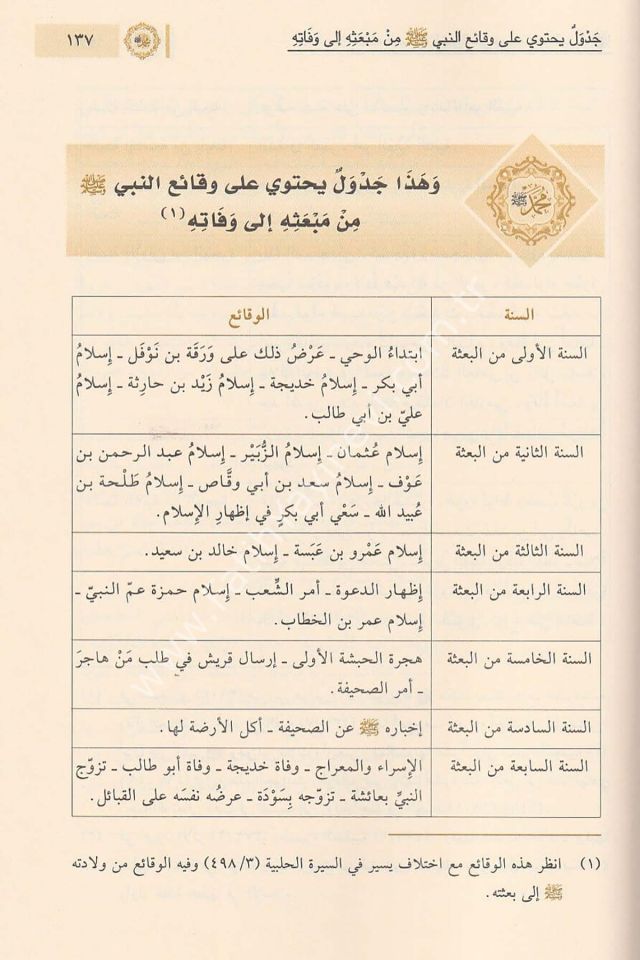 جَدْوَلٌ يحتوي على وقائع النبي ﷺ مِنْ مَبْعَثِهِ إلى وَفَاتِهِ
١٣٧
وَهَذَا جَدْوَلٌ يحتوي على وقائع النبي ﷺ
مِنْ مَبْعَثِهِ إلى وَفَاتِهِ(١)
محمد ﷺ
السنة
الوقائع
السنة الأولى من البعثة
ابتداءُ الوحي ـ عَرْضُ ذلك على وَرَقَة بن نَوْفَل ـ إسلامُ
أبي بكر ـ إسلامُ خديجة ـ إسلامُ زَيْد بن حارثة ـ إسلامُ
عليّ بن أبي طالب.
السنة الثانية من البعثة
إسلام عُثمان ـ إسلامُ الزُّبَيْر ـ إسلامُ عبد الرحمن بن
عَوْف ـ إسلامُ سعد بن أبي وقَّاص ـ إسلامُ طَلْحة بن
عُبيد الله ـ سَعْي أبي بكرٍ في إظهارِ الإسلام.
السنة الثالثة من البعثة
إسلام عَمْرو بن عَبَسة ـ إسلام خالد بن سعيد.
السنة الرابعة من البعثة
إظهار الدعوة ـ أمر الشِّعب ـ إسلام حمزة عمّ النبيّ ـ
إسلام عمر بن الخطاب.
السنة الخامسة من البعثة
هجرة الحبشة الأولى ـ إرسال قريش في طلب مَنْ هاجرَ
ـ أمر الصحيفة.
السنة السادسة من البعثة
إخباره ﷺ عن الصحيفة ـ أكل الأرضة لها.
السنة السابعة من البعثة
الإسراء والمعراج ـ وفاة خديجة ـ وفاة أبو طالب ـ تزوّج
النبيِّ بعائشة ـ تزوّجه بِسَوْدَة ـ عرضُه نفسَه على القبائل.
(١) انظر هذه الوقائع مع اختلاف يسير في السيرة الحلبية (٤٩٨/٣) وفيه الوقائع من ولادته
ﷺ إلى بعثته.